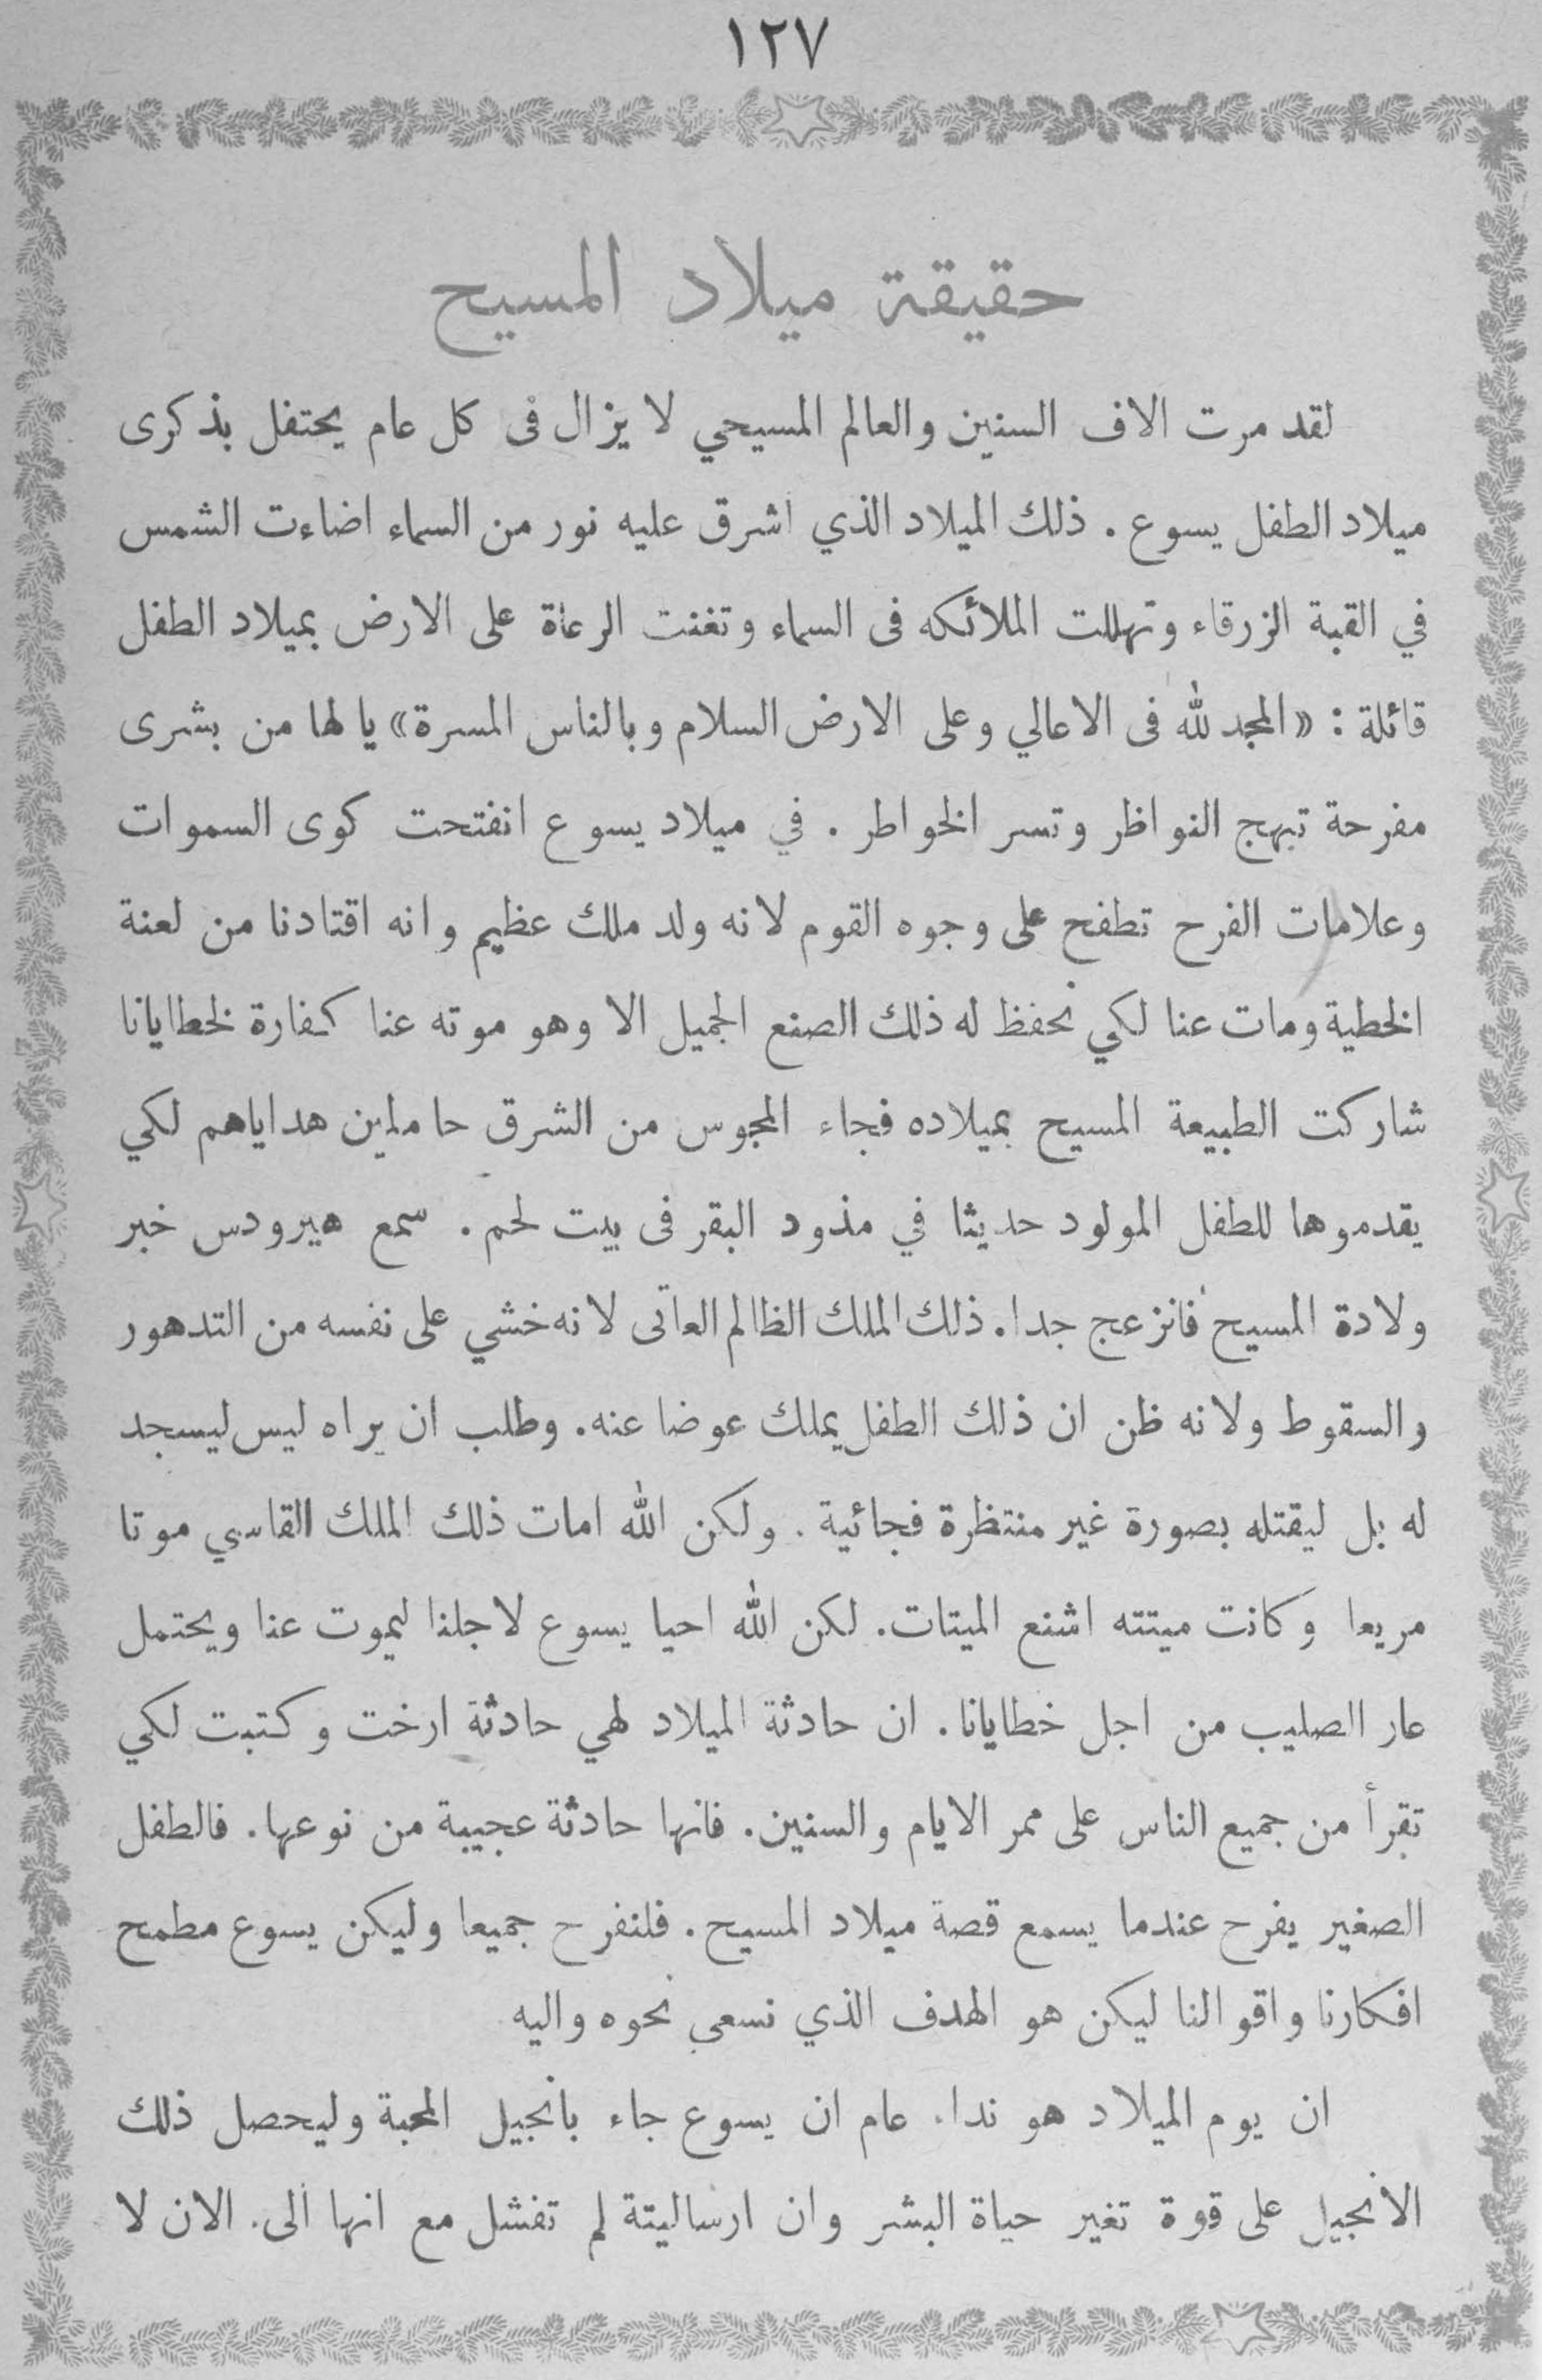 ١٢٧
حقيقة ميلاد المسيح
لقد مرت الاف السنين والعالم المسيحي لا يزال فى كل عام يحتفل بذكرى
ميلاد الطفل يسوع . ذلك الميلاد الذي اشرق عليه نور من السماء اضاءت الشمس
في القبة الزرقاء وتهللت الملائكه فى السماء وتغنت الرعاة على الارض بميلاد الطفل
قائلة : «المجد لله فى الاعالي وعلى الارض السلام وبالناس المسرة» يا لها من بشرى
مفرحة تبهج النواظر وتسر الخواطر . في ميلاد يسوع انفتحت كوى السموات
وعلامات الفرح تطفح على وجوه القوم لانه ولد ملك عظيم وانه اقتادنا من لعنة
الخطية ومات عنا لكي نحفظ له ذلك الصنع الجميل الا وهو موته عنا كفارة لخطايانا
شاركت الطبيعة المسيح بميلاده فجاء المجوس من الشرق حاملين هداياهم لكي
يقدموها للطفل المولود حديثا في مذود البقر فى بيت لحم . سمع هيرودس خبر
ولادة المسيح فانزعج جدا. ذلك الملك الظالم العاتى لانه خشي على نفسه من التدهور
والسقوط ولانه ظن ان ذلك الطفل يملك عوضا عنه. وطلب ان يراه ليس ليسجد
له بل ليقتله بصورة غير منتظرة فجائية . ولكن الله امات ذلك الملك القاسي موتا
مريعا وكانت ميتته اشنع الميتات. لكن الله احيا يسوع لاجلنا ليموت عنا ويحتمل
عار الصليب من اجل خطايانا. ان حادثة الميلاد لهي حادثة ارخت وكتبت لكي
تقرأ من جميع الناس على ممر الايام والسنين. فانها حادثة عجيبة من نوعها. فالطفل
الصغير يفرح عندما يسمع قصة ميلاد المسيح. فلنفرح جميعا وليكن يسوع مطمح
افكارنا واقوالنا ليكن هو الهدف الذي نسعى نحوه واليه
ان يوم الميلاد هو نداء عام ان يسوع جاء بانجيل المحبة وليحصل ذلك
الانجيل على قوة تغير حياة البشر وان ارساليتة لم تفشل مع انها الى. الان لا